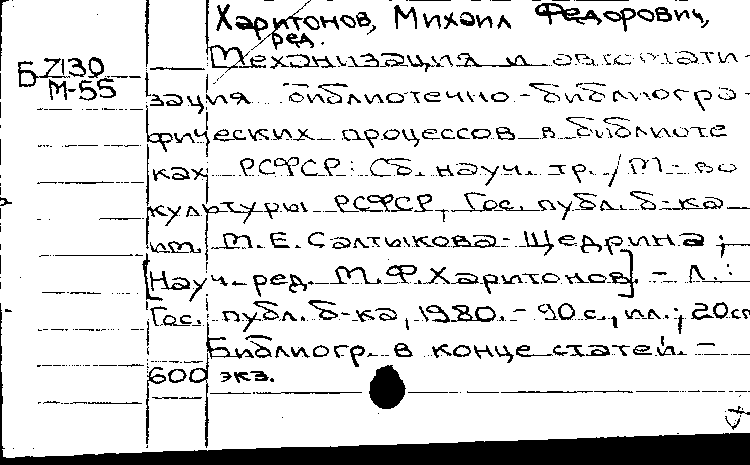 Харитонов, Михаил Федорович,
ред.
Механизация и автомати-
Б 7130
М-55
зация библиотечно-библиогра-
фических процессов в библиоте
ках РСФСР: Сб. науч. тр. / М-во
культуры РСФСР, Гос. публ. б-ка
им. М.Е. Салтыкова-Щедрина;
[Науч. ред. М.Ф. Харитонов]. - Л.:
Гос. публ. б-ка, 1980. - 90 с., ил.; 20см
Библиогр. в конце статей. -
600 экз.